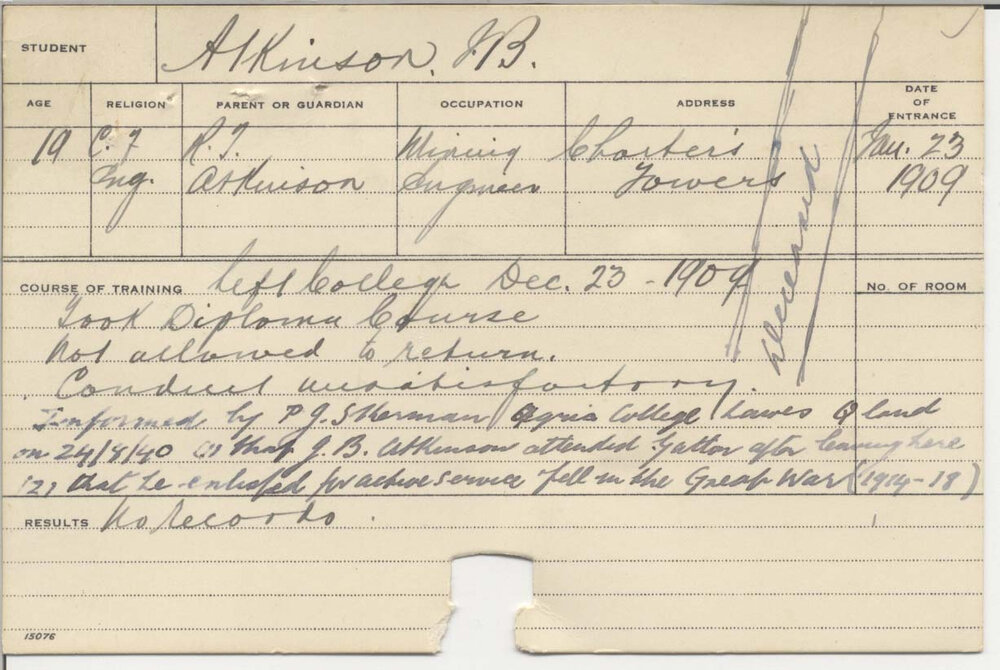 STUDENT Atkinson. J.B.
AGE RELIGION PARENT OR GUARDIAN OCCUPATION ADDRESS DATE OF ENTRANCE
19 C. of R. T. Mining Charters Jan. 23
Eng. Atkinson Engineer Towers 1909
deceased
COURSE OF TRAINING Left College Dec. 23 - 1909 No. OF ROOM
Took Diploma Course
Not allowed to return.
Conduct unsatisfactory.
Informed by P J. Skerman Agric College Lawes Q land
on 24/8/40 (1) that J. B. Atkinson attended Gatton after leaving here
(2) that he enlisted for active service fell in the Great War (1914-18)
RESULTS No Records.
15076